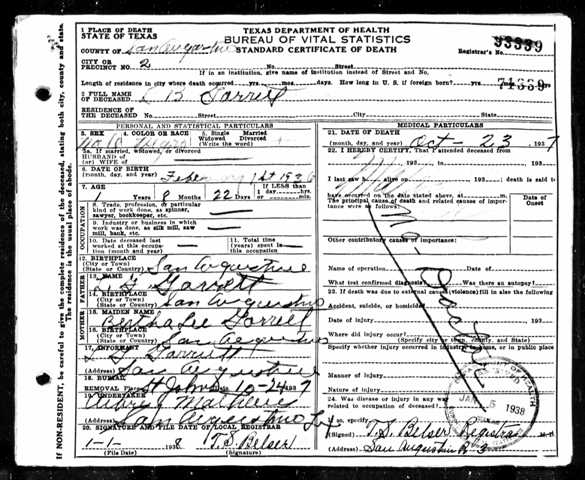 1 PLACE OF DEATH
STATE OF TEXAS
TEXAS DEPARTMENT OF HEALTH
BUREAU OF VITAL STATISTICS
STANDARD CERTIFICATE OF DEATH
COUNTY OF San Augustine
Registrar's No.
CITY OR
PRECINCT NO. 2 No. Street
If in an institution, give name of institution instead of Street and No.
Length of residence in city where death occurred yrs. mos. days. How long in U. S. if foreign born? yrs.
2 FULL NAME
OF DECEASED L B Garrett
RESIDENCE OF
THE DECEASED No. Street City State
PERSONAL AND STATISTICAL PARTICULARS
3. SEX 4. COLOR OR RACE 5. Single Married
Widowed Divorced
(Write the word)
5a. If married, widowed, or divorced
HUSBAND OF
(or) WIFE OF
6. DATE OF BIRTH
(month, day, and year) February 1st 1936
7. AGE
Years 8 Months 22 Days
If LESS than
1 day
8. Trade, profession, or particular
kind of work done, as spinner,
sawyer, bookkeeper, etc.
9. Industry or business in which
work was done, as silk mill, saw
mill, bank, etc.
10. Date deceased last
worked at this occupation
(month and year)
11. Total time
(years) spent in
this occupation
12. BIRTHPLACE
(City or Town)
(State or Country) San Augustine
FATHER
13. NAME L G Garrett
14. BIRTHPLACE
(City or Town)
(State or Country) San Augustine
MOTHER
15. MAIDEN NAME Bertha Lee Garrett
16. BIRTHPLACE
(City or Town)
(State or Country) San Augustine
17. INFORMANT L G Garrett
(Address) San Augustine
18. BURIAL
REMOVAL Place St Johns 10-24 1937
19. UNDERTAKER
(Address) San Augustine Tex
20. SIGNATURE AND FILE DATE OF LOCAL REGISTRAR
1-1- 1938 T. S. Belser
(File Date) (Signature)
MEDICAL PARTICULARS
21. DATE OF DEATH
(month, day, and year) Oct - 23 1937
22. I HEREBY CERTIFY, That I attended deceased
from
I last saw alive on ; death is said to
have occurred on the date stated above, at m.
The principal cause of death and related causes of importance
were as follows:
Date of
Onset
No Doctor
Other contributory causes of importance:
Name of operation Date of
What test confirmed diagnosis? Was there an autopsy?
23. If death was due to external causes (violence) fill in also the following
Accident, suicide, or homicide?
Date of injury
Where did injury occur?
Specify whether injury occurred in industry, in home, or in public place
Manner of Injury
Nature of injury
24. Was disease or injury in any way
related to occupation of deceased?
If so, specify
(Signed) T. S. Belser Registrar
(Address) San Augustine R 3
JAN 1938
IF NON-RESIDENT, be careful to give the complete residence of the deceased, stating both city, county and state.
The residence is the usual place of abode.